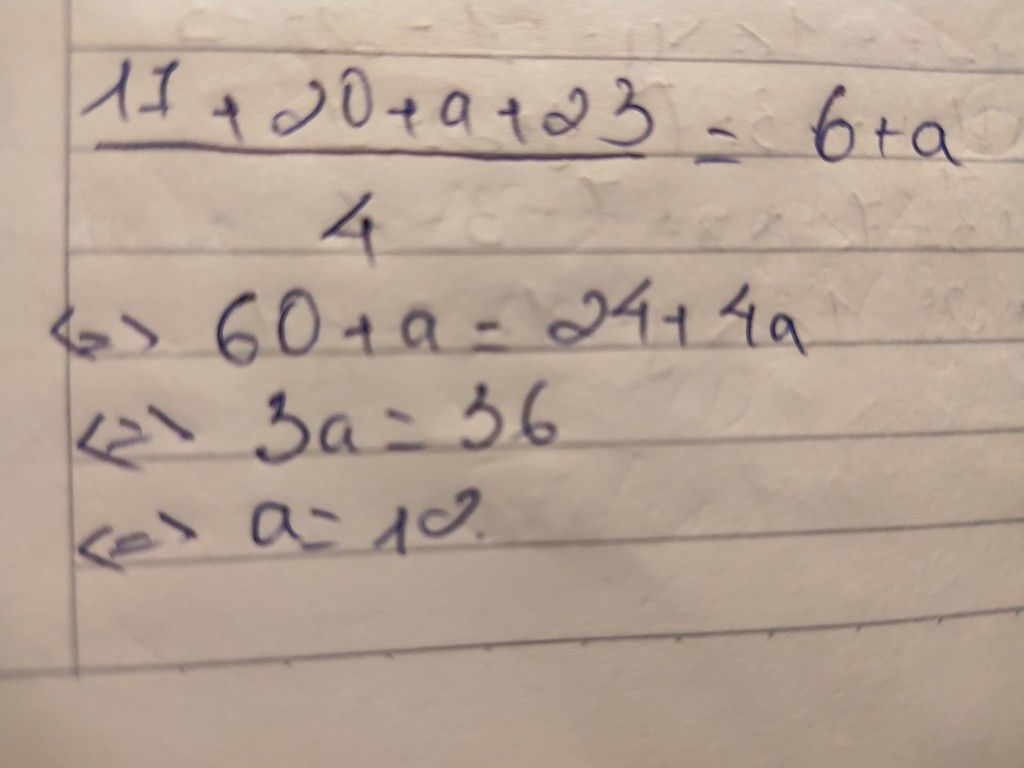 17 + 20 + a + 23 = 6 + a
4
<=> 60 + a = 24 + 4a
<=> 3a = 36
<=> a = 12.